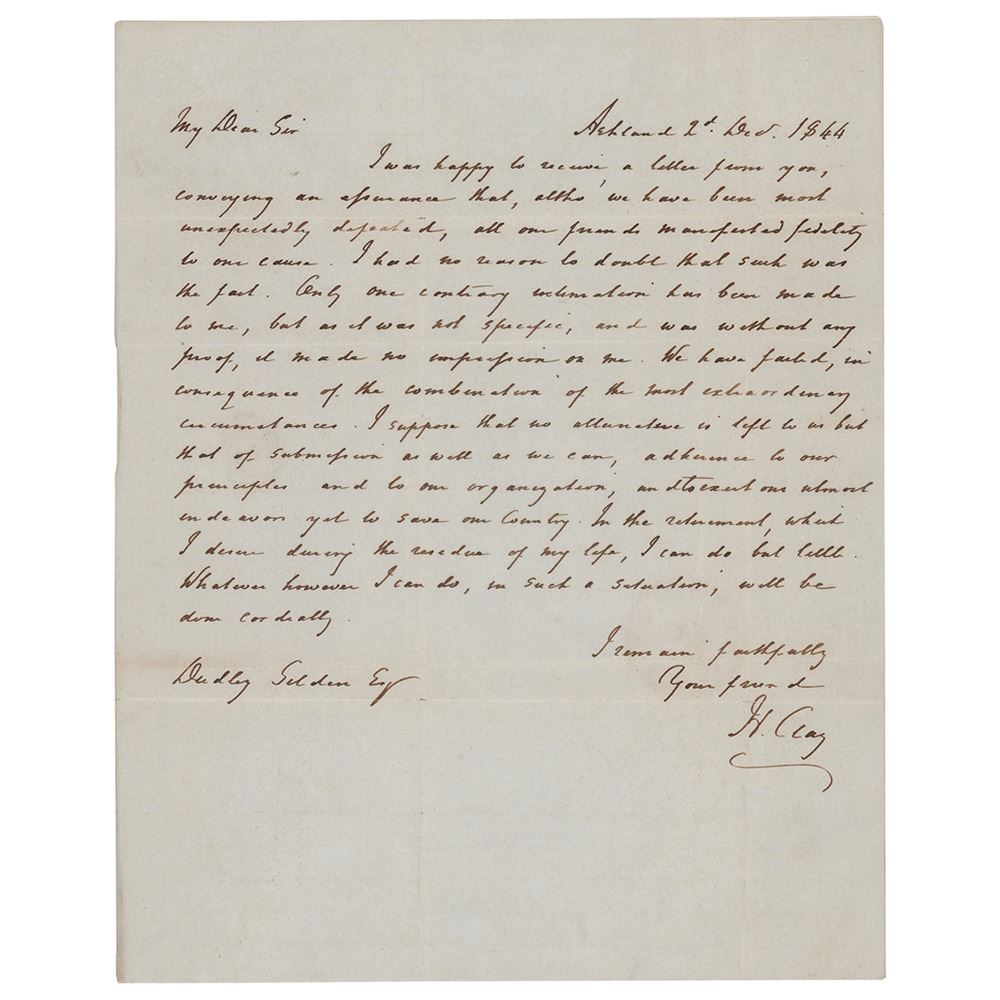 My Dear Sir
Ashland 2d. Decr. 1844
I was happy to receive a letter from you,
conveying an assurance that, altho' we have been most
unexpectedly defeated, all our friends manifested fidelity
to our cause. I had no reason to doubt that such was
the fact. Only one contrary intimation has been made
to me, but as it was not specific, and was without any
proof, it made no impression on me. We have failed, in
consequence of the combination of the most extraordinary
circumstances. I suppose that no alternative is left to us but
that of submission as well as we can, adherence to our
principles and to our organization, and to exert our utmost
endeavors yet to save our Country. In the retirement, which
I desire during the residue of my life, I can do but little.
Whatever however I can do, in such a situation, will be
done cordially.
I remain faithfully
Your friend
H. Clay
Dudley Selden Esqr